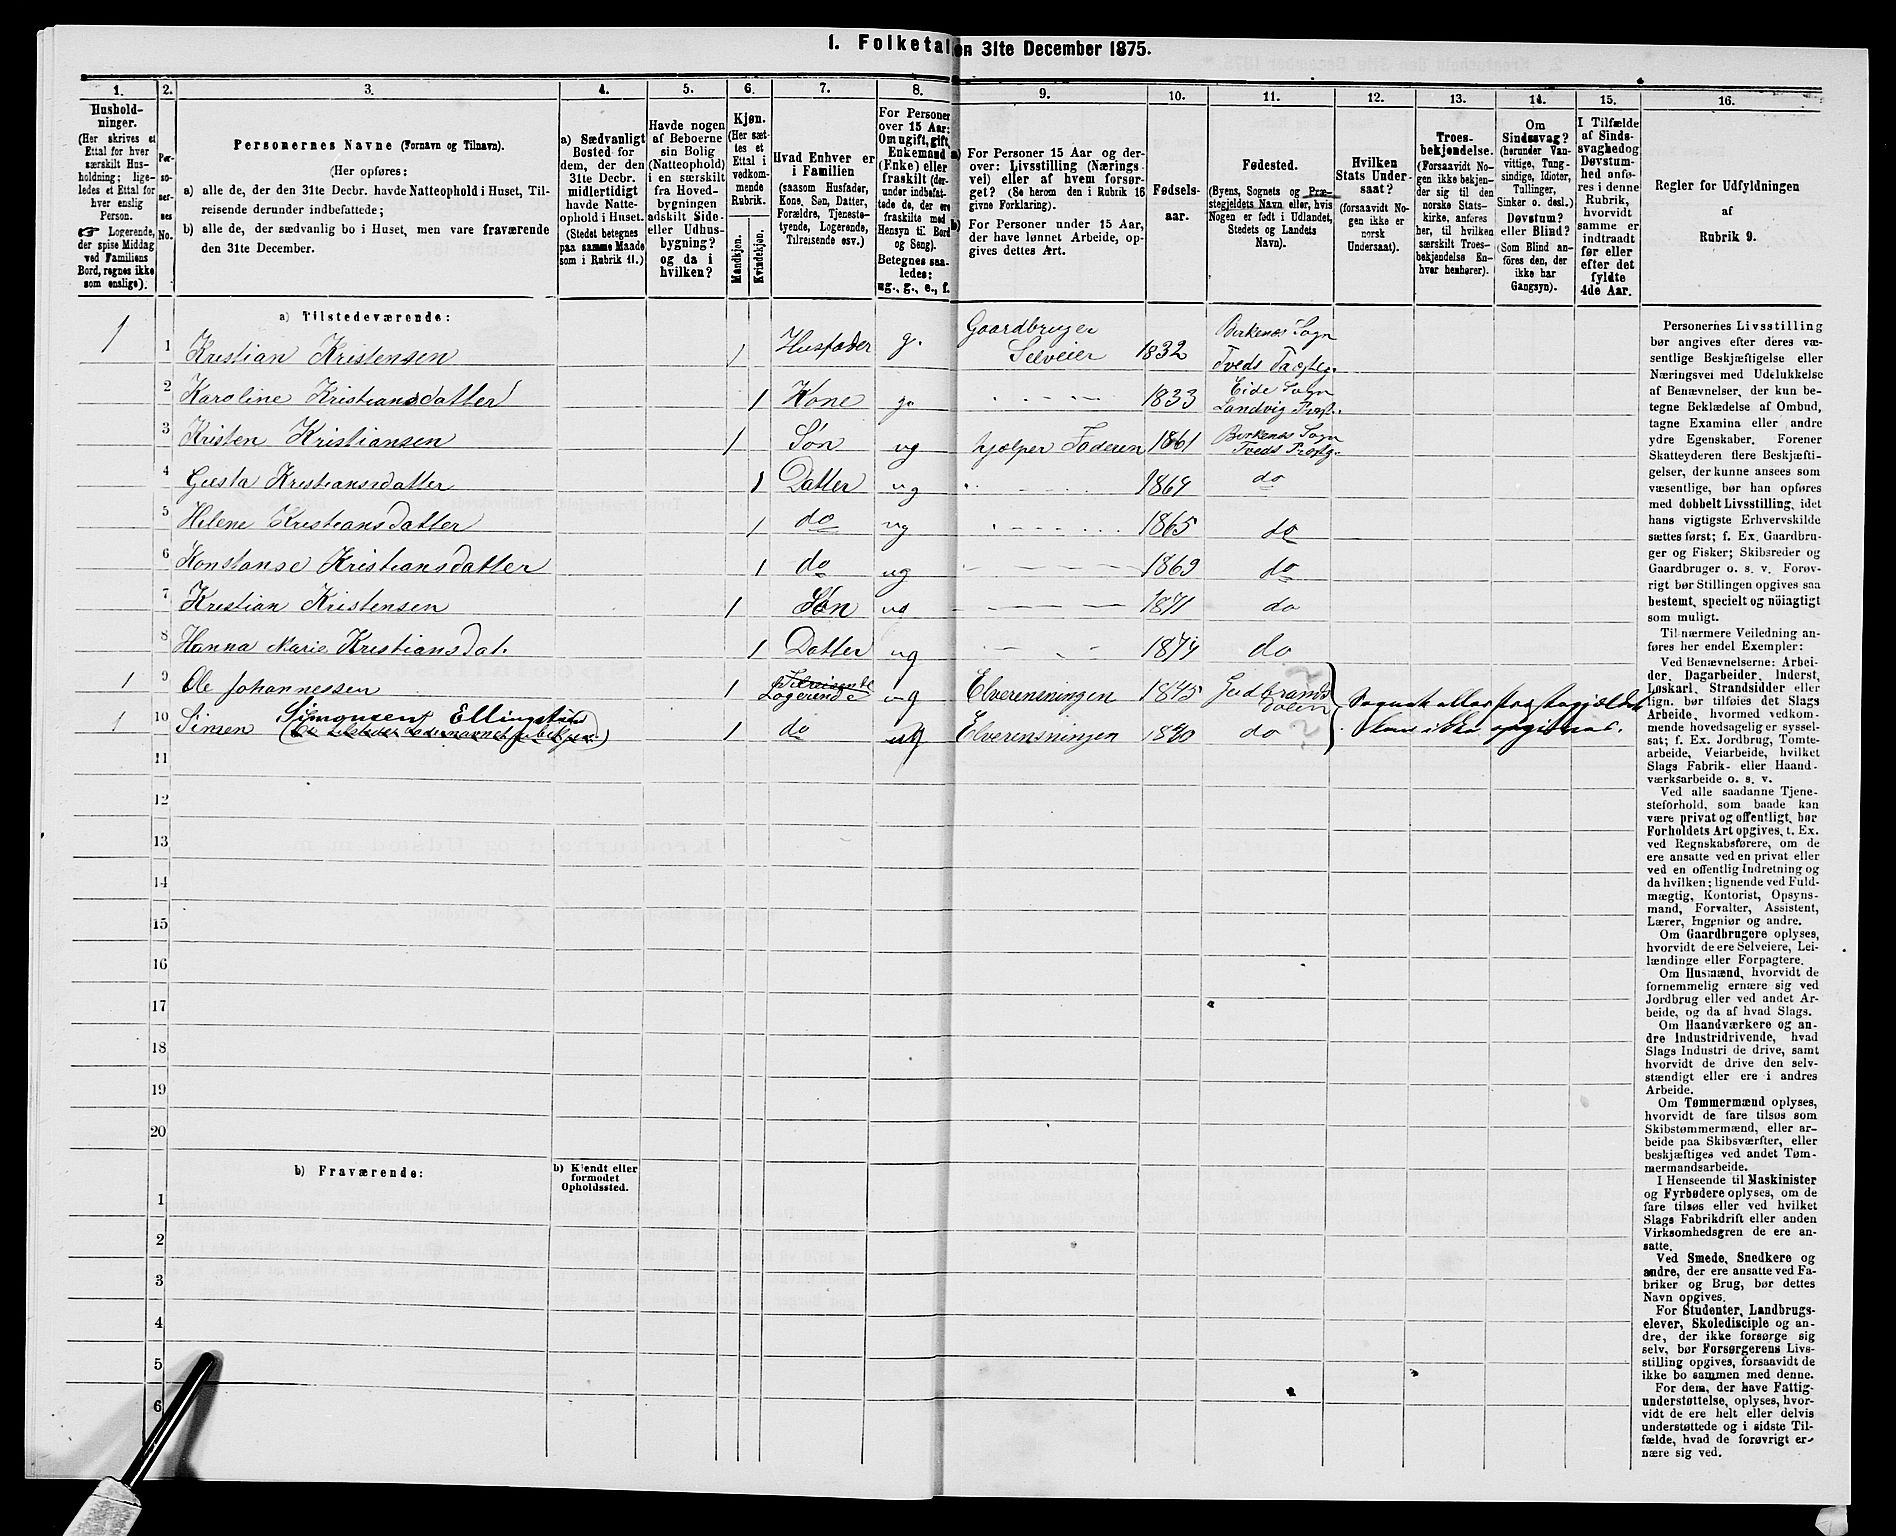 1. Folketal den 31te December 1875.
1. 2. 3. 4. 5. 6. 7. 8. 9. 10. 11. 12. 13. 14. 15. 16.
Hushold-
ninger.
(Her skrives et
Ettal for hver
særskilt Hus-
holdning; lige-
ledes et Ettal for
hver enslig
Person.
☞ Logerende,
der spise Middag
ved Familiens
Bord, regnes ikke
som enslige).
Per-
so-
ner-
nes
No.
Personernes Navne (Fornavn og Tilnavn).
(Her opføres:
a) alle de, der den 31te Decbr. havde Natteophold i Huset, Til-
reisende derunder indbefattede;
b) alle de, der sædvanlig bo i Huset, men vare fraværende
den 31te December.
a) Sædvanligt
Bosted for
dem, der den
31te Decbr.
midlertidigt
havde Natte-
ophold i Huset.
(Stedet betegnes
paa samme Maade
som i Rubrik 11.)
Havde nogen
af Beboerne
sin Bolig
(Natteophold)
i en særskilt
fra Hoved-
bygningen
adskilt Side-
eller Udhus-
bygning?
og da i
hvilken?
Kjøn.
(Her sæt-
tes et
Ettal i
vedkom-
mende
Rubrik.
Mandkjøn.
Kvindekjøn.
Hvad Enhver er
i Familien
(saasom Husfader,
Kone, Søn, Datter,
Forældre, Tjeneste-
tyende, Logerende,
Tilreisende osv.)
For Personer
over 15 Aar:
Om ugift, gift,
Enkemand
(Enke) eller
fraskilt (der-
under indbefat-
tede de, der ere
fraskilte med
Hensyn til Bord
og Seng).
Betegnes saa-
ledes:
ug., g., e., f.
a) For Personer 15 Aar og der-
over: Livsstilling (Nærings-
vei) eller af hvem forsør-
get? (Se herom den i Rubrik 16
givne Forklaring).
b) For Personer under 15 Aar,
der have lønnet Arbeide, op-
gives dettes Art.
Fødsels-
aar.
Fødested.
(Byens, Sognets og Præ-
stegjeldets Navn eller, hvis
Nogen er født i Udlandet,
Stedets og Landets
Navn).
Hvilken
Stats Under-
saat?
(forsaavidt No-
gen ikke er
norsk
Undersaat).
Troes-
bekjendelse.
(Forsaavidt No-
gen ikke bekjen-
der sig til den
norske Stats-
kirke, anføres
her, til hvilken
særskilt Troes-
bekjendelse En-
hver henhører).
Om
Sindssvag?
(herunder Van-
vittige, Tung-
sindige, Idioter,
Tullinger,
Sinker o. desl.)
Døvstum?
eller Blind?
(Som Blind an-
føres den, der
ikke har
Gangsyn).
I Tilfælde
af Sinds-
svaghed og
Døvstum-
hed anfø-
res i denne
Rubrik,
hvorvidt
samme er
indtraadt
før eller
efter det
fyldte
4de Aar.
Regler for Udfyldningen
af
Rubrik 9.
a) Tilstedeværende:
1 1 Kristian Kristensen 1 Husfader g. Gaardbruger Selveier 1832 Birkenæs Sogn Tveds Præstg.
2 Karoline Kristiansdatter 1 Kone g. 1833 Eide Sogn Landvig Præst.
3 Kristen Kristiansen 1 Søn ug hjælper Faderen 1861 Birkenæs Sogn Tveds Præstg.
4 Gusta Kristiansdatter 1 Datter ug 1864 do
5 Helene Kristiansdatter 1 do ug 1865 do
6 Konstanse Kristiansdatter 1 do ug 1869 do
7 Kristian Kristensen 1 Søn ug 1871 do
8 Hanna Marie Kristiansdat. 1 Datter ug 1874 do
1 9 Ole Johannessen 1 Tilreisende Logerende ug Elverensningen 1845 Gudbrandsdalen
1 10 Simen Simonsen Ellingstad 1 do ug Elverensningen 1840 do
Sognet eller Præstegjældet
kan ikke opgives.
11
12
13
14
15
16
17
18
19
20
b) Fraværende:
b) Kjendt eller
formodet
Opholdssted.
1
2
3
4
5
6
Personernes Livsstilling
bør angives efter deres væ-
sentlige Beskjæftigelse eller
Næringsvei med Udelukkelse
af Benævnelser, der kun be-
tegne Beklædelse af Ombud,
tagne Examina eller andre
ydre Egenskaber. Forener
Skatteyderen flere Beskjæfti-
gelser, der kunne ansees som
væsentlige, bør han opføres
med dobbelt Livsstilling, idet
hans vigtigste Erhvervskilde
sættes først; f. Ex. Gaardbru-
ger og Fisker; Skibsreder og
Gaardbruger o. s. v. Forøv-
rigt bør Stillingen opgives saa
bestemt, specielt og nöiagtigt
som muligt.
Til nærmere Veiledning an-
føres her endel Exempler:
Ved Benævnelserne: Arbei-
der, Dagarbeider, Inderst,
Løskarl, Strandsidder eller
lign. bør tilføies det Slags
Arbeide, hvormed vedkom-
mende hovedsagelig er syssel-
sat; f. Ex. Jordbrug, Tomte-
arbeide, Veiarbeide, hvilket
Slags Fabrik- eller Haand-
værksarbeide o. s. v.
Ved alle saadanne Tjene-
steforhold, som baade kan
være privat og offentligt, bør
Forholdets Art opgives, t. Ex.
ved Regnskabsførere, om de
ere ansatte ved en privat eller
ved en offentlig Indretning og
da hvilken; lignende ved Fuld-
mægtig, Kontorist, Opsyns-
mand, Forvalter, Assistent,
Lærer, Ingeniør og andre.
Om Gaardbrugere oplyses,
hvorvidt de ere Selveiere, Lei-
lændinge eller Forpagtere.
Om Husmænd, hvorvidt de
fornemmelig ernære sig ved
Jordbrug eller ved andet Ar-
beide, og da af hvad Slags.
Om Haandværkere og an-
dre Industridrivende, hvad
Slags Industri de drive, samt
hvorvidt de drive den selv-
stændigt eller ere i andres
Arbeide.
Om Tømmermænd oplyses,
hvorvidt de fare tilsøs som
Skibstømmermænd, eller ar-
beide paa Skibsværfter, eller
beskjæftiges ved andet Tøm-
mermandsarbeide.
I Henseende til Maskinister
og Fyrbødere oplyses, om de
fare tilsøs eller ved hvilket
Slags Fabrikdrift eller anden
Virksomhedsgren de ere an-
satte.
Ved Smede, Snedkere og
andre, der ere ansatte ved Fa-
briker og Brug, bør dettes
Navn opgives.
For Studenter, Landbrugs-
elever, Skoledisciple og an-
dre, der ikke forsørge sig
selv, bør Forsørgerens Livs-
stilling opgives, forsaavidt de
ikke bo sammen med denne.
For dem, der have Fattig-
understøttelse, oplyses, hvor-
vidt de ere helt eller delvis
understøttede og i sidste Til-
fælde, hvad de forøvrigt er-
nære sig ved.